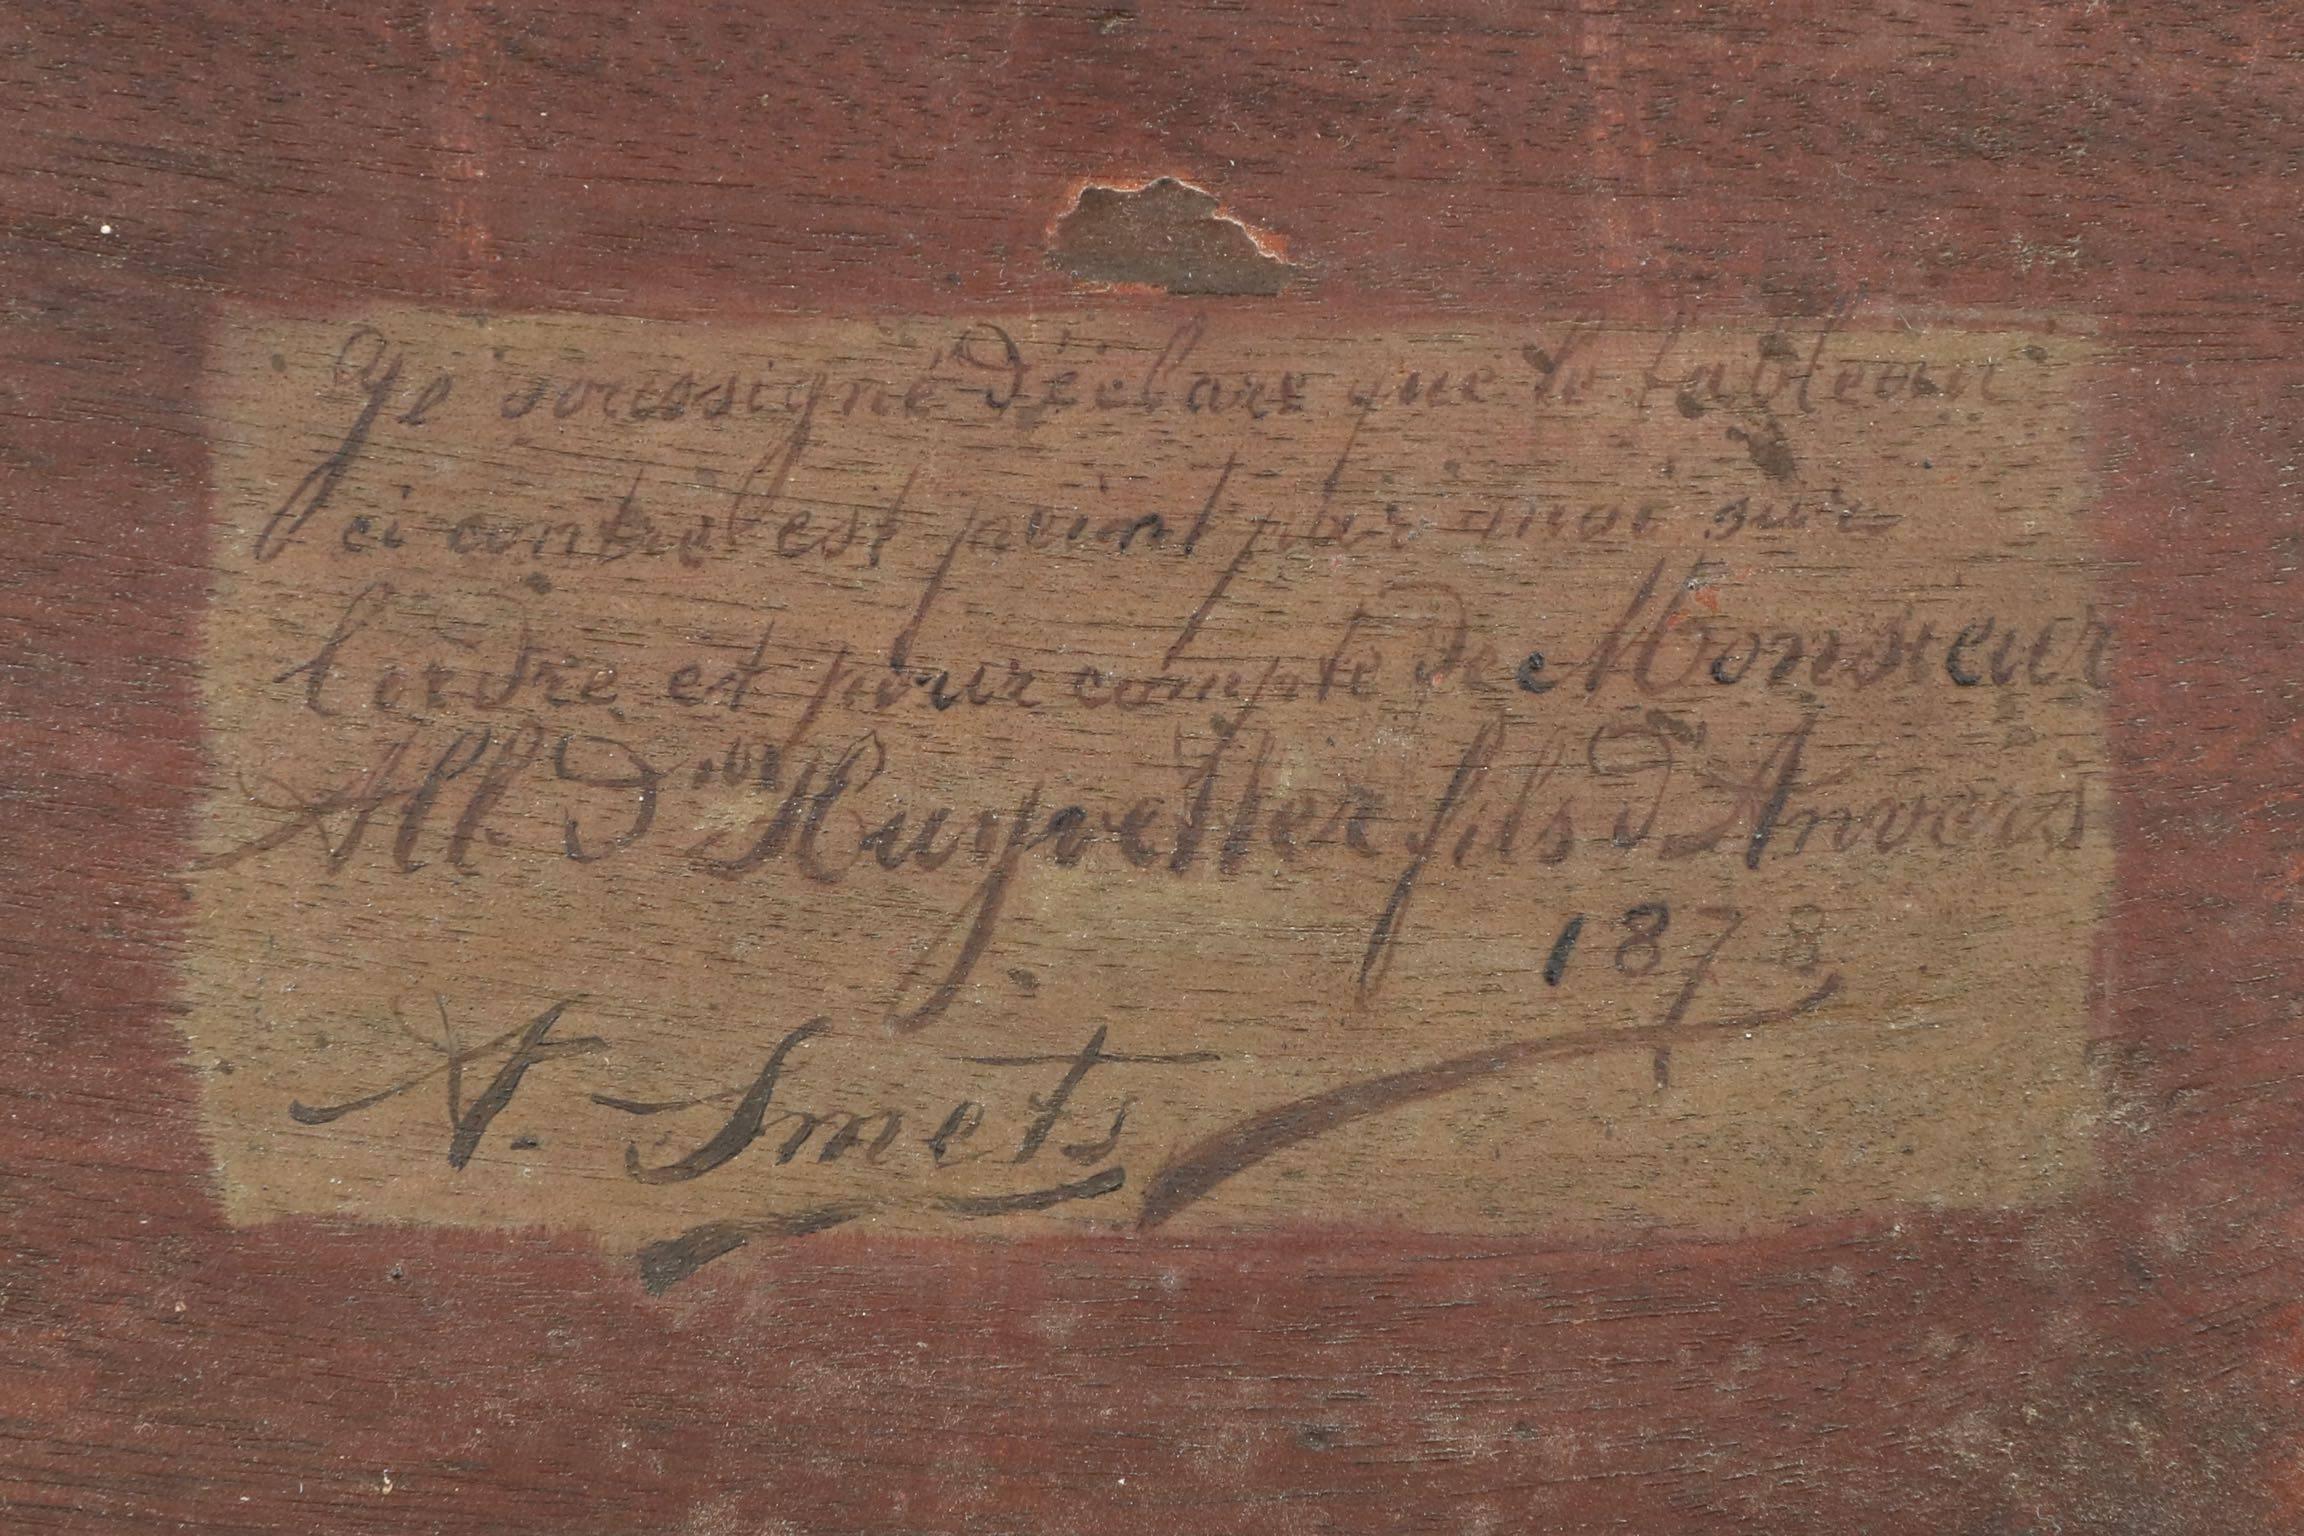 Je soussigné déclare que le tableau
ci contre est peint par moi sur
l'ordre et pour compte de Monsieur
Huyvetter fils d'Anvers
1878
A. Smets